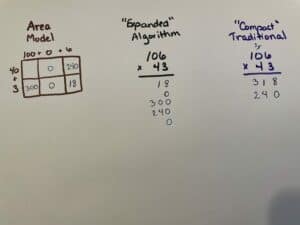 Area
Model
100 + 0 + 6
40
+
3
0
240
300
0
18
"Expanded"
Algorithm
106
× 43
18
0
300
240
0
"Compact"
Traditional
106
× 43
318
240